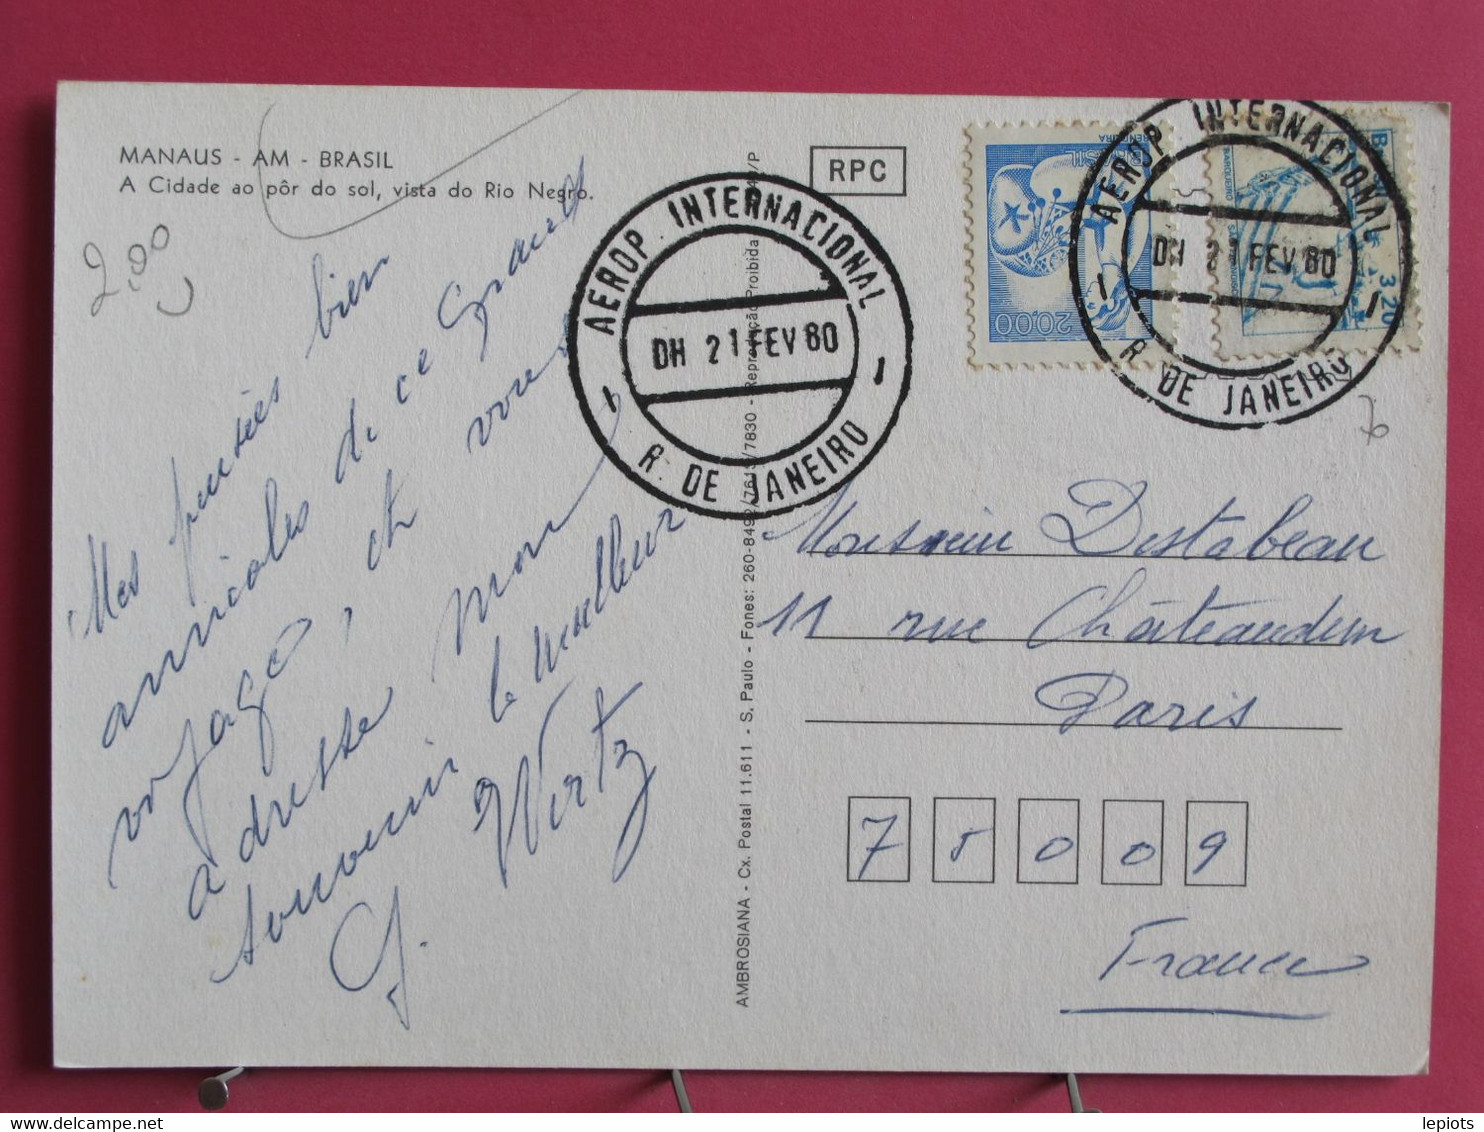 MANAUS - AM - BRASIL
A Cidade ao pôr do sol, vista do Rio Negro.
2,00
RPC
Mes pensées bien
amicales de ce grand
voyage, et vous
adresse mon
souvenir le meilleur
G. Wirtz
AEROP INTERNACIONAL
DH 21 FEV 80
R. DE JANEIRO
BRASIL
20,00
AEROP INTERNACIONAL
DH 21 FEV 80
R. DE JANEIRO
3,20
AMBROSIANA - Cx. Postal 11.611 - S. Paulo - Fones: 260-8492/7613/7830 - Reprodução Proibida
Monsieur Destabeau
11 rue Châteaudun
Paris
75009
France
lepiots